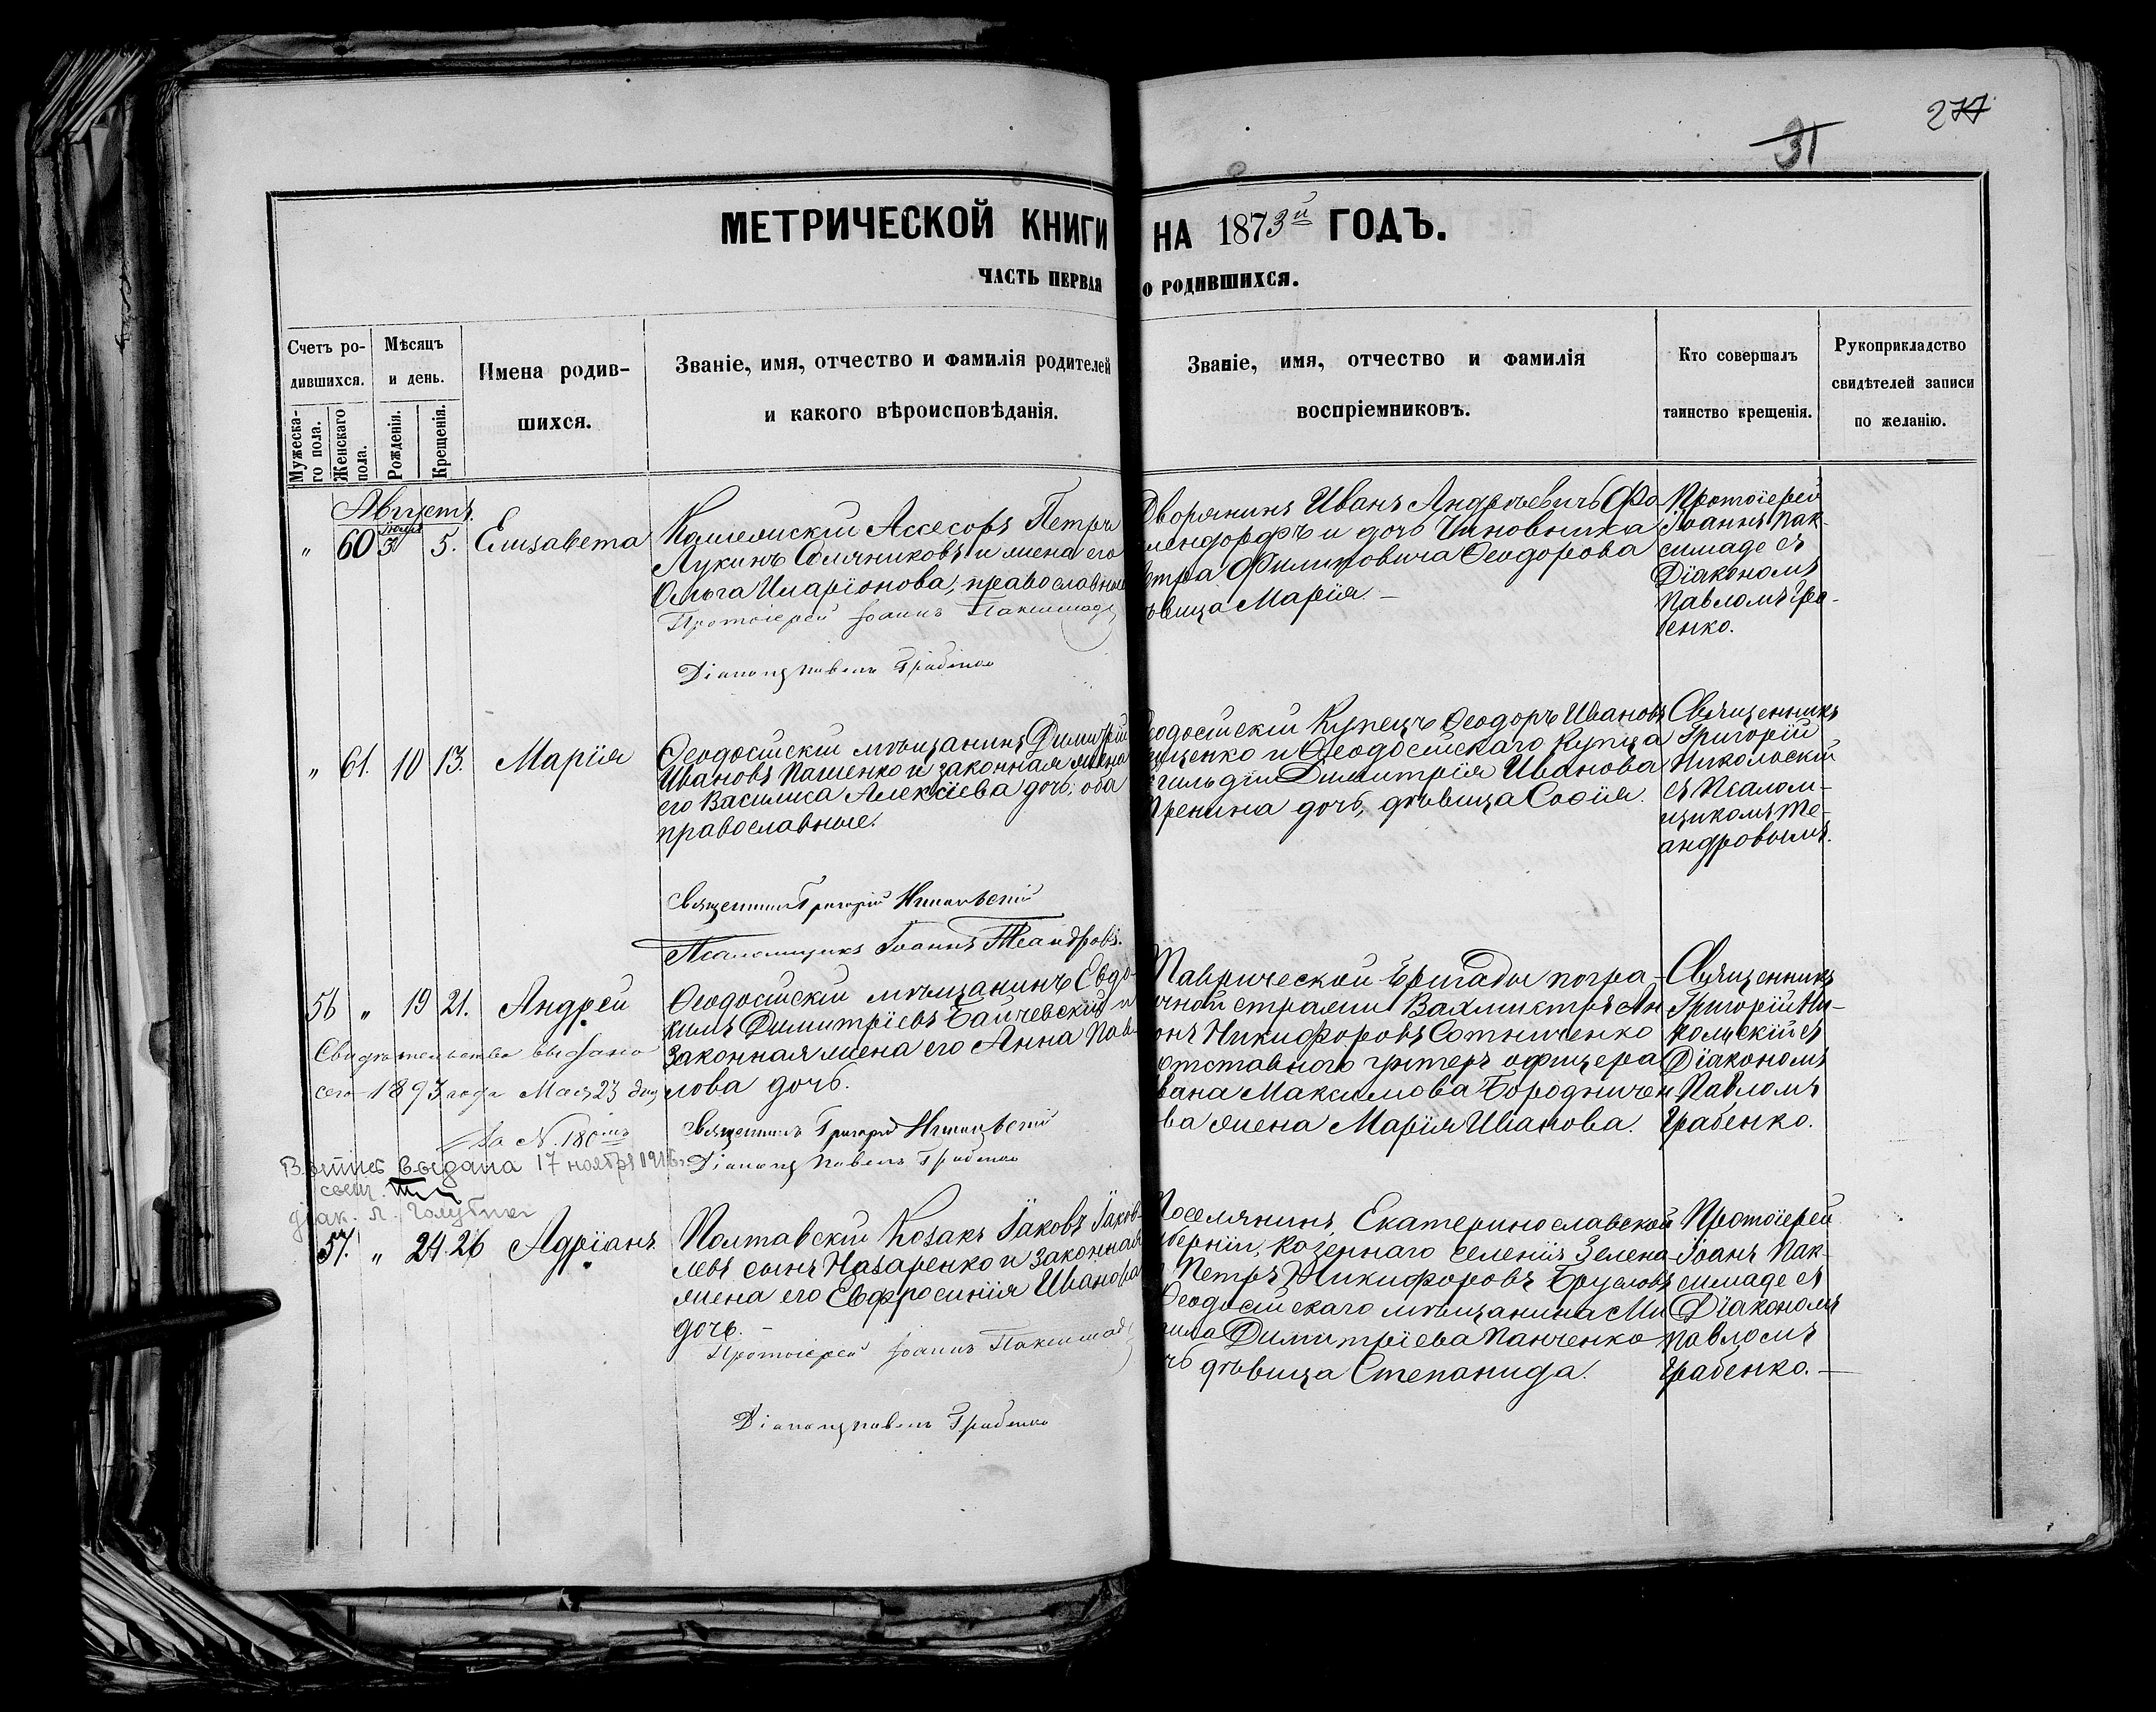 277
31
МЕТРИЧЕСКОЙ КНИГИ НА 1873й ГОДЪ.
ЧАСТЬ ПЕРВАЯ О РОДИВШИХСЯ.
Счетъ ро-
дившихся.
Мужеска-
го пола.
Женскаго
пола.
Мѣсяцъ
и день.
Рожденія.
Крещенія.
Имена родив-
шихся.
Званіе, имя, отчество и фамилія родителей
и какого вѣроисповѣданія.
Званіе, имя, отчество и фамилія
воспріемниковъ.
Кто совершалъ
таинство крещенія.
Рукоприкладство
свидѣтелей записи
по желанію.
Августъ.
" 60 31 5. Елисавета
Ассесоръ Петръ
Лукинъ Соляниковъ и жена его
Ольга Иларіонова, православные
Протоіерей Іоаннъ Паксимаде
Діаконъ Павелъ Грабенко
Дворянинъ Иванъ Андреевичъ Фо
лендорфъ и дочь Чиновника
етра Филиповича Ѳеодорова
ѣвица Марія –
Протоіерей
Іоаннъ Пак-
симаде съ
Діакономъ
Павломъ Гра-
бенко.
" 61. 10 13. Марія
Ѳеодосійскій мѣщанинъ Димитрій
Ивановъ Пашенко и законная жена
его Василиса Алексіева дочь; оба
православные.
Священникъ Григорій Никольскій
Псаломщикъ Іоаннъ Теандровъ.
одосійскій Купецъ Ѳеодоръ Ивановъ
щенко и Ѳеодосійскаго купца
гильдіи Димитрія Иванова
пренина дочь, дѣвица Софія.
Священникъ
Григорій
Никольскій
съ Псалом-
щикомъ Те-
андровымъ.
56 " 19 21. Андрей
Свидѣтельство выдано
сего 1893 года Мая 23 дня
за N. 180мъ
Выпись выдана 17 ноября 1916
свящ.
діак. Л. Голубни
Ѳеодосійскій мѣщанинъ Евдо-
кимъ Димитріевъ Байчевскій и
законная жена его Анна Пав-
лова дочь.
Священникъ Григорій Никольскій
Діаконъ Павелъ Грабенко
Таврической бригады погра-
ичной стражи Вахмистръ Ан
онъ Никифоровъ Сотниченко
отставного унтеръ офицера
вана Максимова Бородничен
ва жена Марія Иванова.
Священникъ
Григорій Ни-
кольскій съ
Діакономъ
Павломъ
Грабенко.
57. " 24. 26 Адріанъ
Полтавскій Козакъ Іаковъ Іаков-
левъ сынъ Назаренко и законная
жена его Евфросинія Иванова
дочь. –
Протоіерей Іоаннъ Паксимаде
Діаконъ Павелъ Грабенко
Поселянинъ Екатеринославской
берніи, козеннаго селенія Зелена
Петръ Никифоровъ Брусловъ
Ѳеодосійскаго мѣщанина Ми
аила Димитріева Панченко
чь дѣвица Степанида.
Протоіерей
Іоанъ Пак-
симаде съ
Діакономъ
Павломъ
Грабенко. –